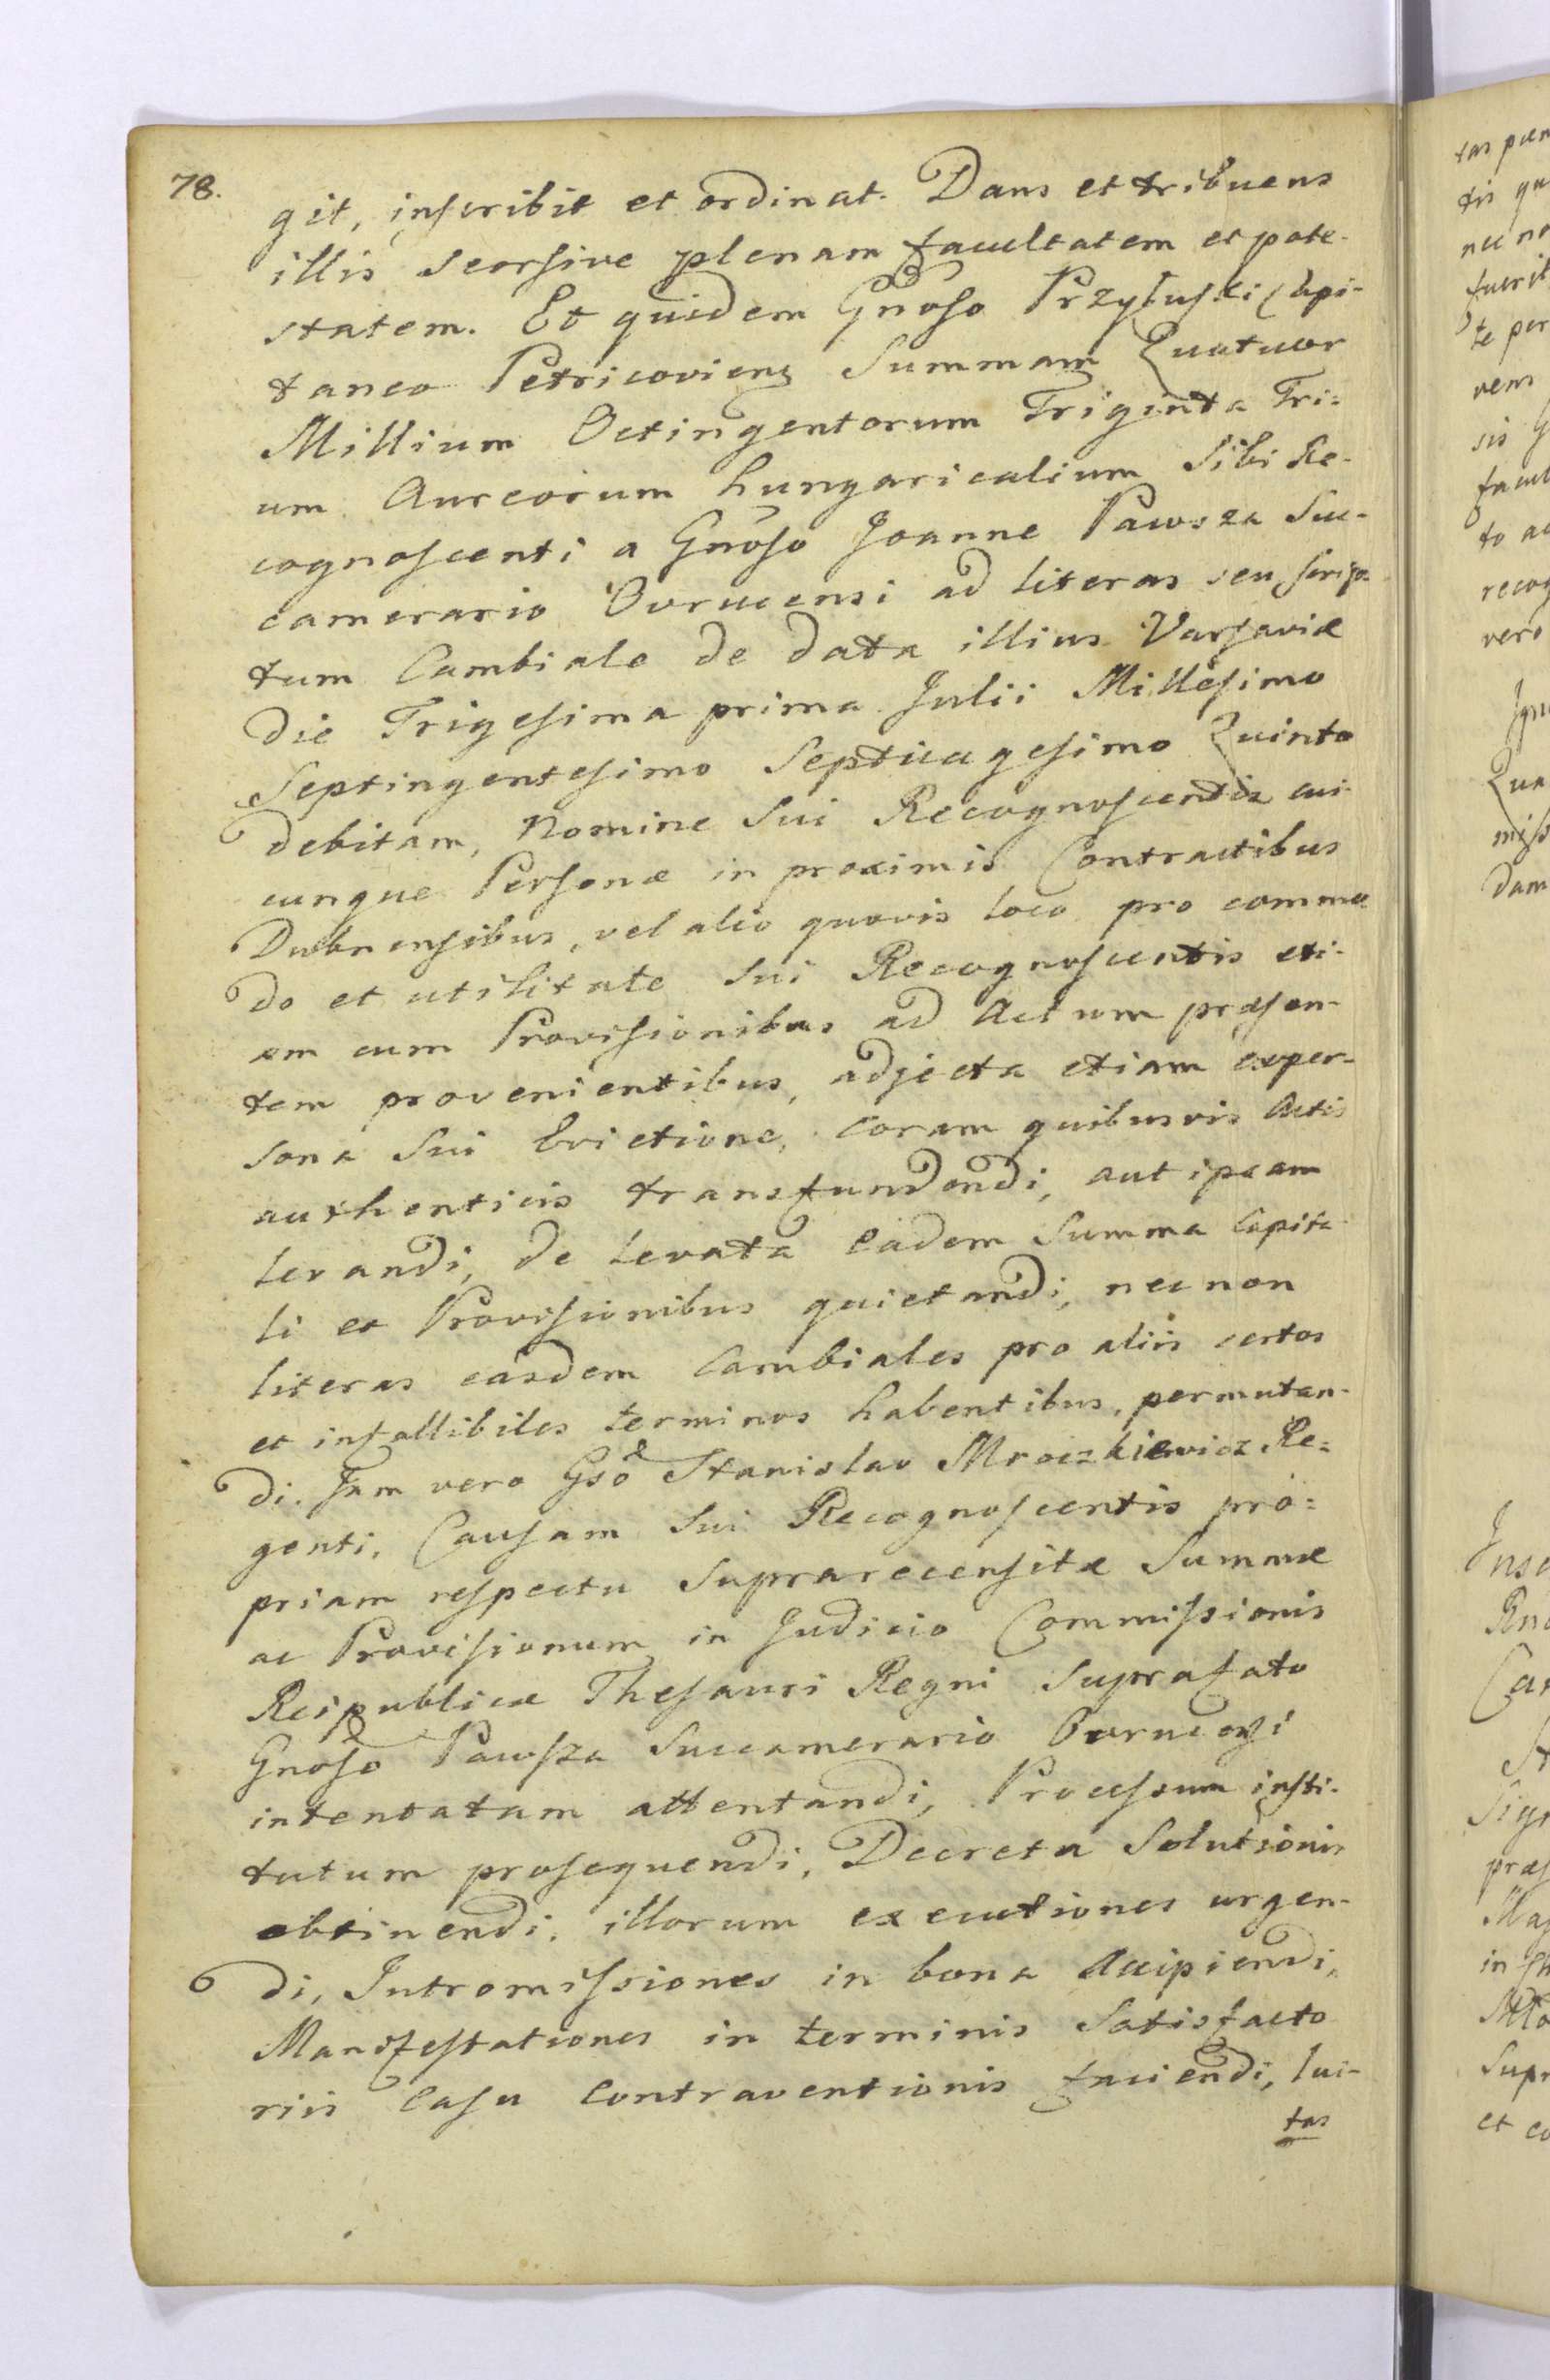 78.
git, inscribit et ordinat. Dans et tribuens
illis seorsive plenam facultatem et pote-
statem. Et quidem Gnoso Przyłuski Capi-
taneo Petricoviens Summam Quatuor
Millium Octingentorum Triginta Tri-
um Aureorum hungaricalium Sibi Re-
cognoscenti a Gnoso Joanne Pawsza Suc-
camerario Ovrucensi ad literas seu scrip-
tum Cambiale de data illius Varsaviæ
die Trigesima prima Julii Millesimo
Septingentesimo Septuagesimo Quinto
debitam, Nomine Sui Recognoscentis cui-
cunque Personæ in proximis Contractibus
Dubnensibus, vel alio quovis loco pro commo
do et utilitate Sui Recognoscentis eti-
am cum Provisionibus ad Actum præsen-
tem provenientibus, adjecta etiam exper-
sona Sui Evictione, coram quibusvis Actis
authenticis transfundendi, aut ipsam
levandi, de levata eadem Summa Capita-
li et Provisionibus quietandi, nec non
literas easdem Cambiales pro aliis certos
et infallibiles terminos habentibus, permutan-
di. Jam vero Gso Stanislao Mroczkiewicz Re-
genti, Causam Sui Recognoscentis pro-
priam respectu Suprarecensitæ Summæ
ac Provisionum in Judicio Commissionis
Reipublicæ Thesauri Regni Suprafato
Gnoso Pawsza Succamerario Ovrucensi
intentatam attentandi, Processum insti-
tutum prosequendi, Decreta Solutionis
obtinendi, illorum executiones urgen-
di, Intromissiones in bona Accipiendi,
Manifestationes in terminis Satisfacto
riis Casu Contraventionis faciendi, lui-
tas
tas pæn
tis qu
nec no
fuerit
te per
vens
sis G
facul
to ac
recog
vero
Qua
miss
dam
Insc
Ca
Sign
præs
in
Supr
et co